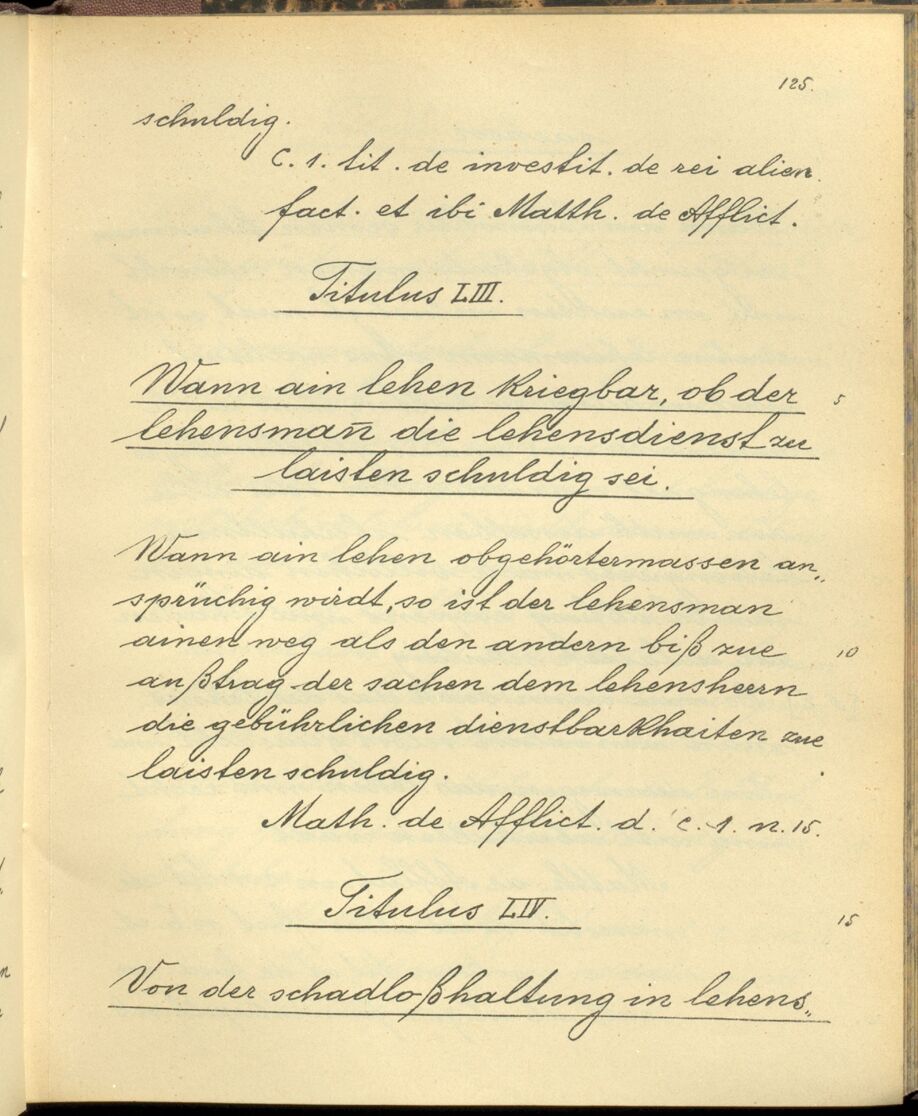 125.
schuldig.
C. 1. tit. de investit. de rei alien.
fact. et ibi Matth. de Afflict.
Titulus LIII.
Wann ain lehen kriegbar, ob der
5
lehensman̄ die lehensdienst zu
laisten schuldig sei.
Wann ain lehen obgehörtermassen an„
sprüchig wirdt, so ist der lehensman
ainen weg als den andern biß zue
10
außtrag der sachen dem lehensherrn
die gebührlichen dienstbarkhaiten zue
laisten schuldig.
Math. de Afflict. d. c. 1. n. 15.
Titulus LIV.
15
Von der schadloßhaltung in lehens„